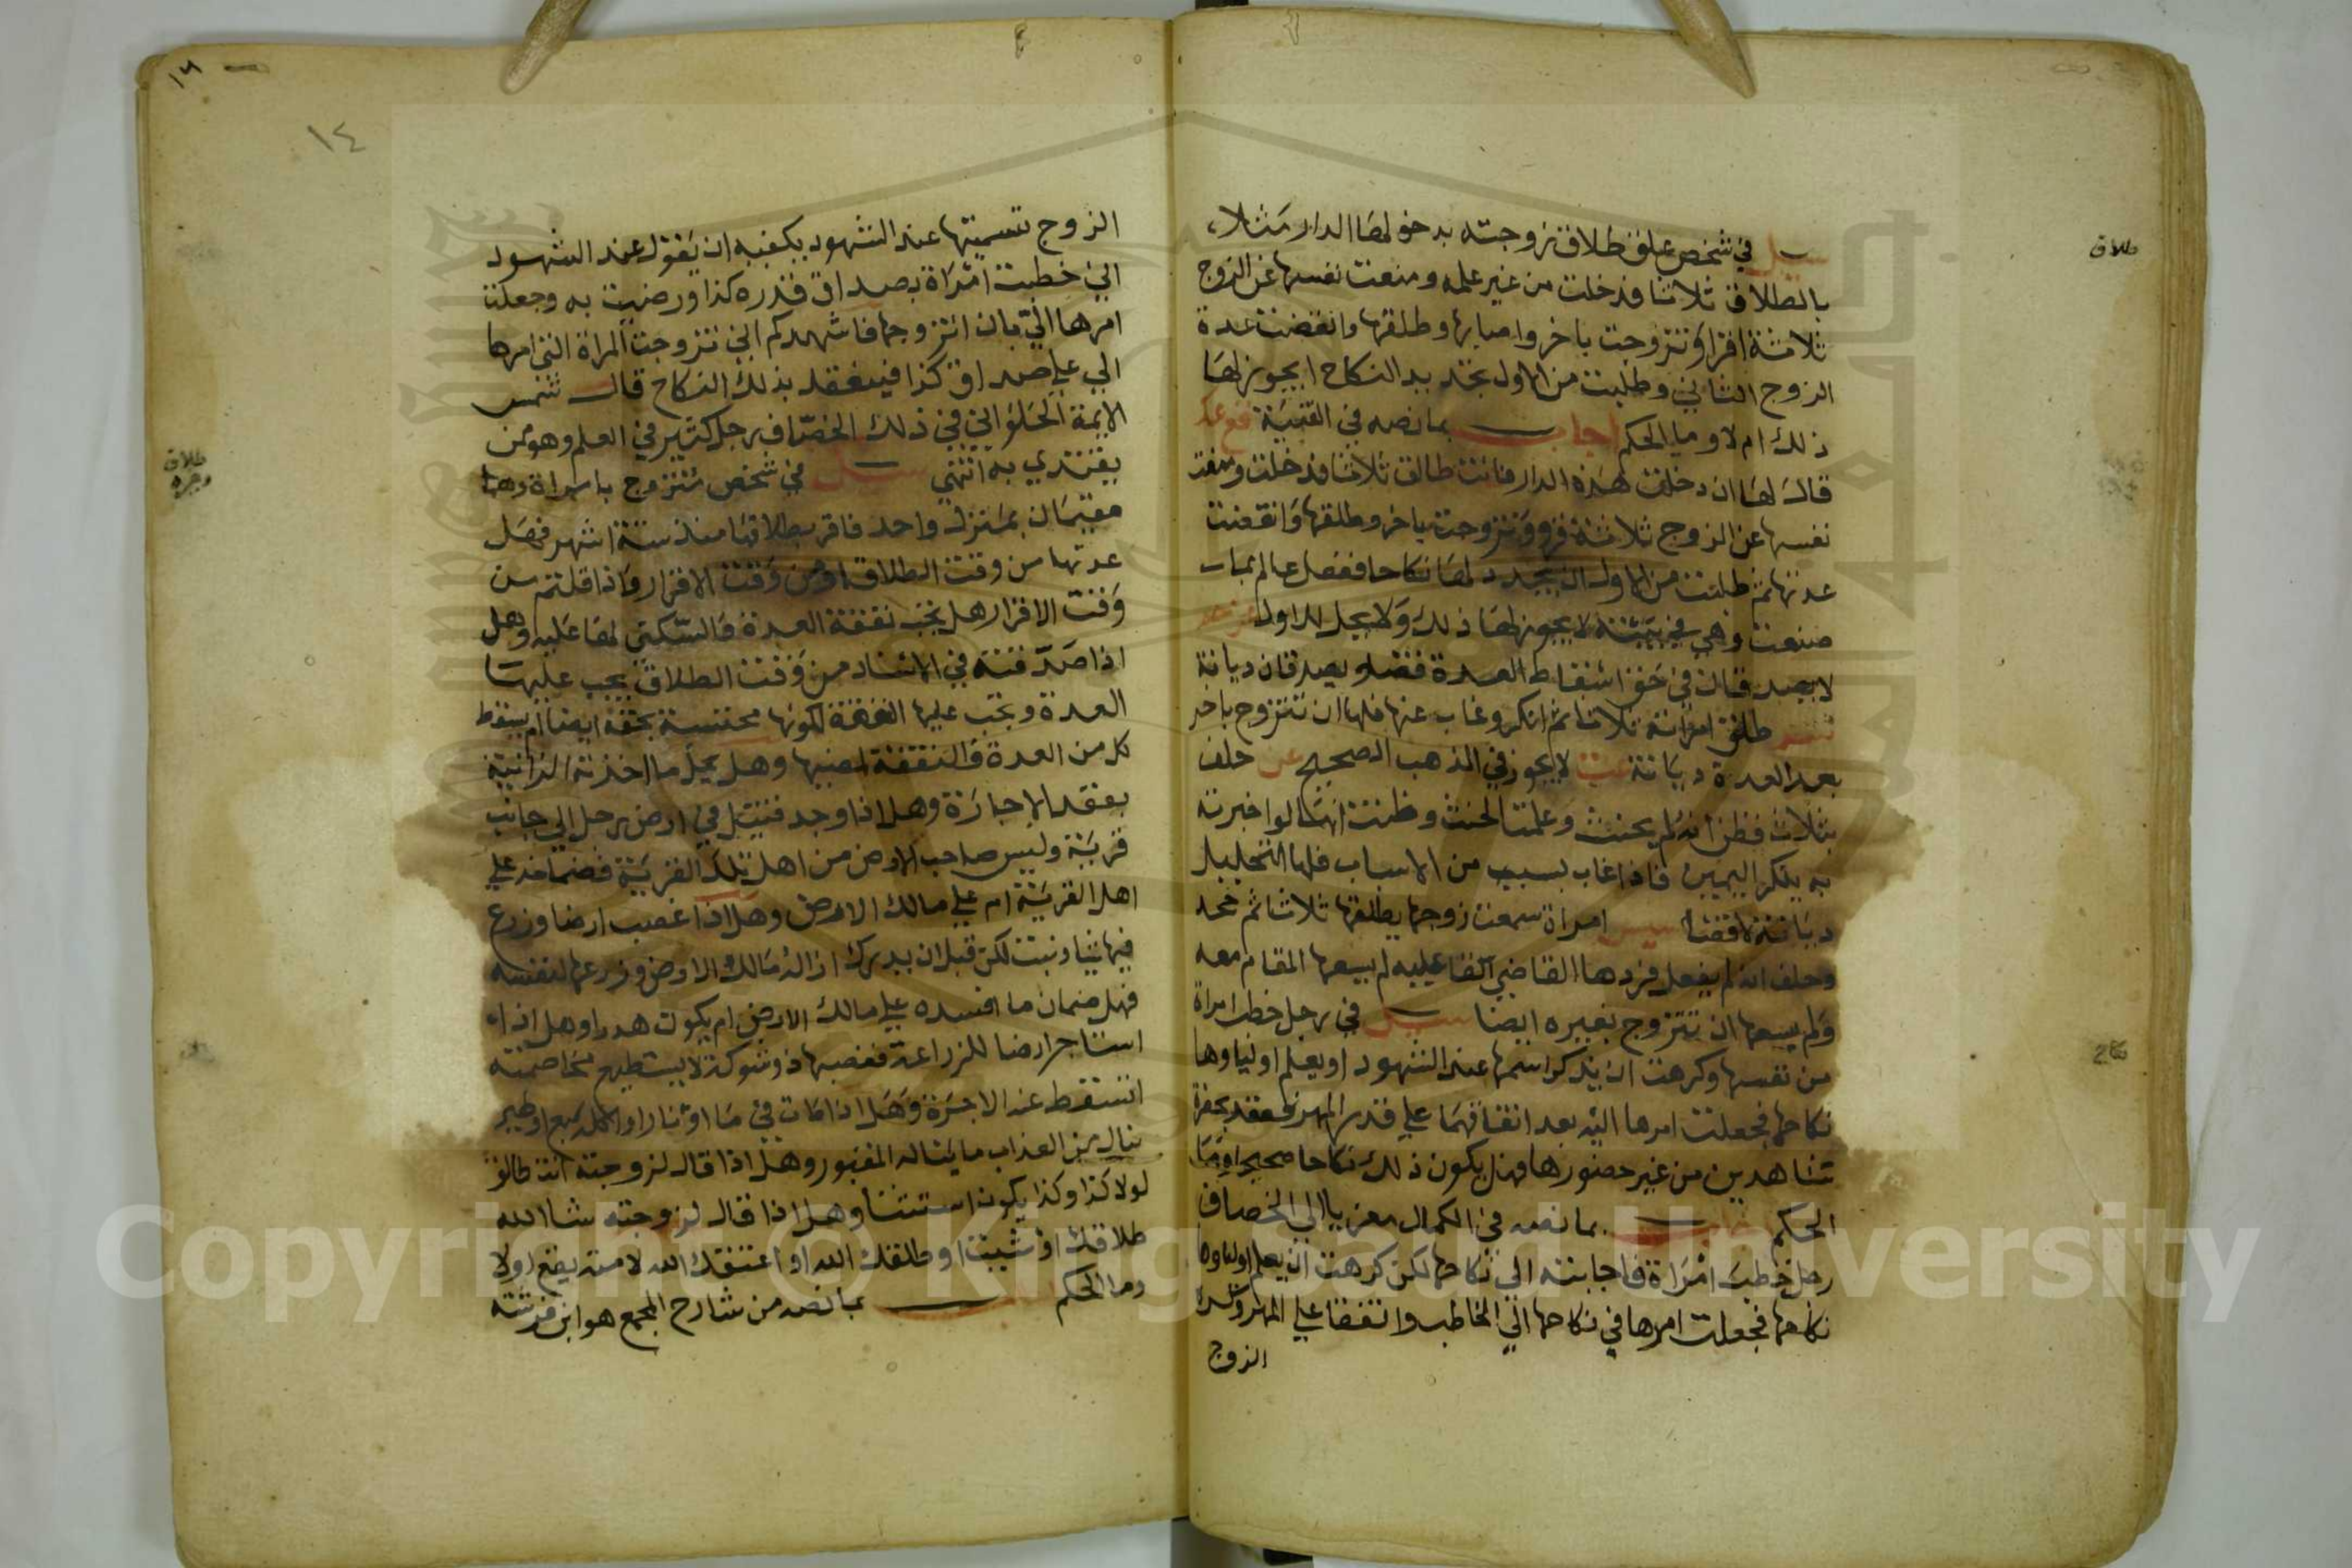 طلاق
سيل في شخص علق طلاق زوجته بدخولها الدار مثلا
بالطلاق ثلاثا فدخلت من غير علمه ومنعت نفسها عن الزوج
ثلاثة اقراؤ تزوجت باخر واصابها وطلقها وانقضت عدة
الزوج الثاني وطلبت من الاول تجديد النكاح ايجوز لها
ذلك ام لا وما الحكم اجاب بما نصه في القنية فع عك
قال لها ان دخلت هذه الدار فانت طالق ثلاثا فدخلت ومنعت
نفسها عن الزوج ثلاثة قروء وتزوجت باخر وطلقها وانقضت
عدتها ثم طلبت من الاول ان يجدد لها نكاحا ففعل عالم بما
صنعت وهي لا يجوز لها ذلك ولا يحل للاول
لا يصدقان في حق اسقاط العدة قضاء ويصدقان ديانة
طلق امراته ثلاثا ثم انكر وغاب عنها فلها ان تتزوج باخر
بعد العدة ديانة عت لا يجوز في المذهب الصحيح عن حلف
بثلاث فظن انه لم يحنث وعلمت الحنث وظنت انها لو اخبرته
به ينكر اليمين فاذا غاب بسبب من الاسباب فلها التحليل
ديانة لا قضا امراة سمعت زوجها يطلقها ثلاثا ثم جحد
وحلف انه لم يفعل فردها القاضي عليه لم يسعها المقام معه
ولم يسعها ان تتزوج بغيره ايضا سيل في رجل خطب امراة
من نفسها وكرهت ان يذكر اسمها عند الشهود او يعلم اولياوها
نكاحها فجعلت امرها اليه بعد اتفاقهما على قدر المهر فعقد بحضرة
شاهدين من غير حضورها فهل يكون ذلك نكاحا صحيحا وما
الحكم اجاب بما نصه في الكمال معزيا الي الخصاف
رجل خطب امراة فاجابته الي نكاحها لكن كرهت ان يعلم اولياوها
نكاحها فجعلت امرها في نكاحها الي الخاطب واتفقا علي المهر وكره
الزوج
١٤
الزوج تسميتها عند الشهود يكفيه ان يقول عند الشهود
اني خطبت امراة بصداق قدره كذا ورضيت به وجعلت
امرها الي بان اتزوجها فاشهدكم اني تزوجت المراة التي امرها
الي علي صداق كذا فينعقد بذلك النكاح قال شمس
الايمة الحلواني في ذلك الخصاف رجل كبير في العلم وهو ممن
يقتدي به انتهي سيل في شخص تزوج بامراة وهما
طلاق
وغيره
مقيمان بمنزل واحد فاقر بطلاقها منذ ستة اشهر فهل
عدتها من وقت الطلاق او من وقت الاقرار واذا قلتم من
وقت الاقرار هل تجب نفقة العدة والسكني لها عليه وهل
اذا صدقته في الاسناد من وقت الطلاق يجب عليها
العدة وتجب عليها النفقة لكونها محتبسة بحقه ايضا ام يسقط
كل من العدة والنفقة لمضيها وهل يحل ما اخذته الزانية
بعقد الاجارة وهل اذا وجد قتيل في ارض رجل الي جانب
قرية وليس صاحب الارض من اهل تلك القرية فضمانه علي
اهل القرية ام علي مالك الارض وهل اذا غصب ارضا وزرع
فيها ونبت لكن قبل ان يدرك ازاله مالك الارض وزرعها لنفسه
فهل ضمان ما افسده علي مالك الارض ام يكون هدرا وهل اذا
استاجر ارضا للزراعة فغصبها ذو شوكة لا يستطيع مخاصمته
اتسقط عنه الاجرة وهل اذا مات في ما او نار او اكله سبع او طير
ينال من العذاب ما يناله المقبور وهل اذا قال لزوجته انت طالق
لولا كذا وكذا يكون استثنا وهل اذا قال لزوجته شا الله
طلاقك او شيت او طلقك الله او اعتقك الله لامته يقع او لا
وما الحكم بما نصه من شارح المجمع هو ابن فرشته
Copyright © King Saud University